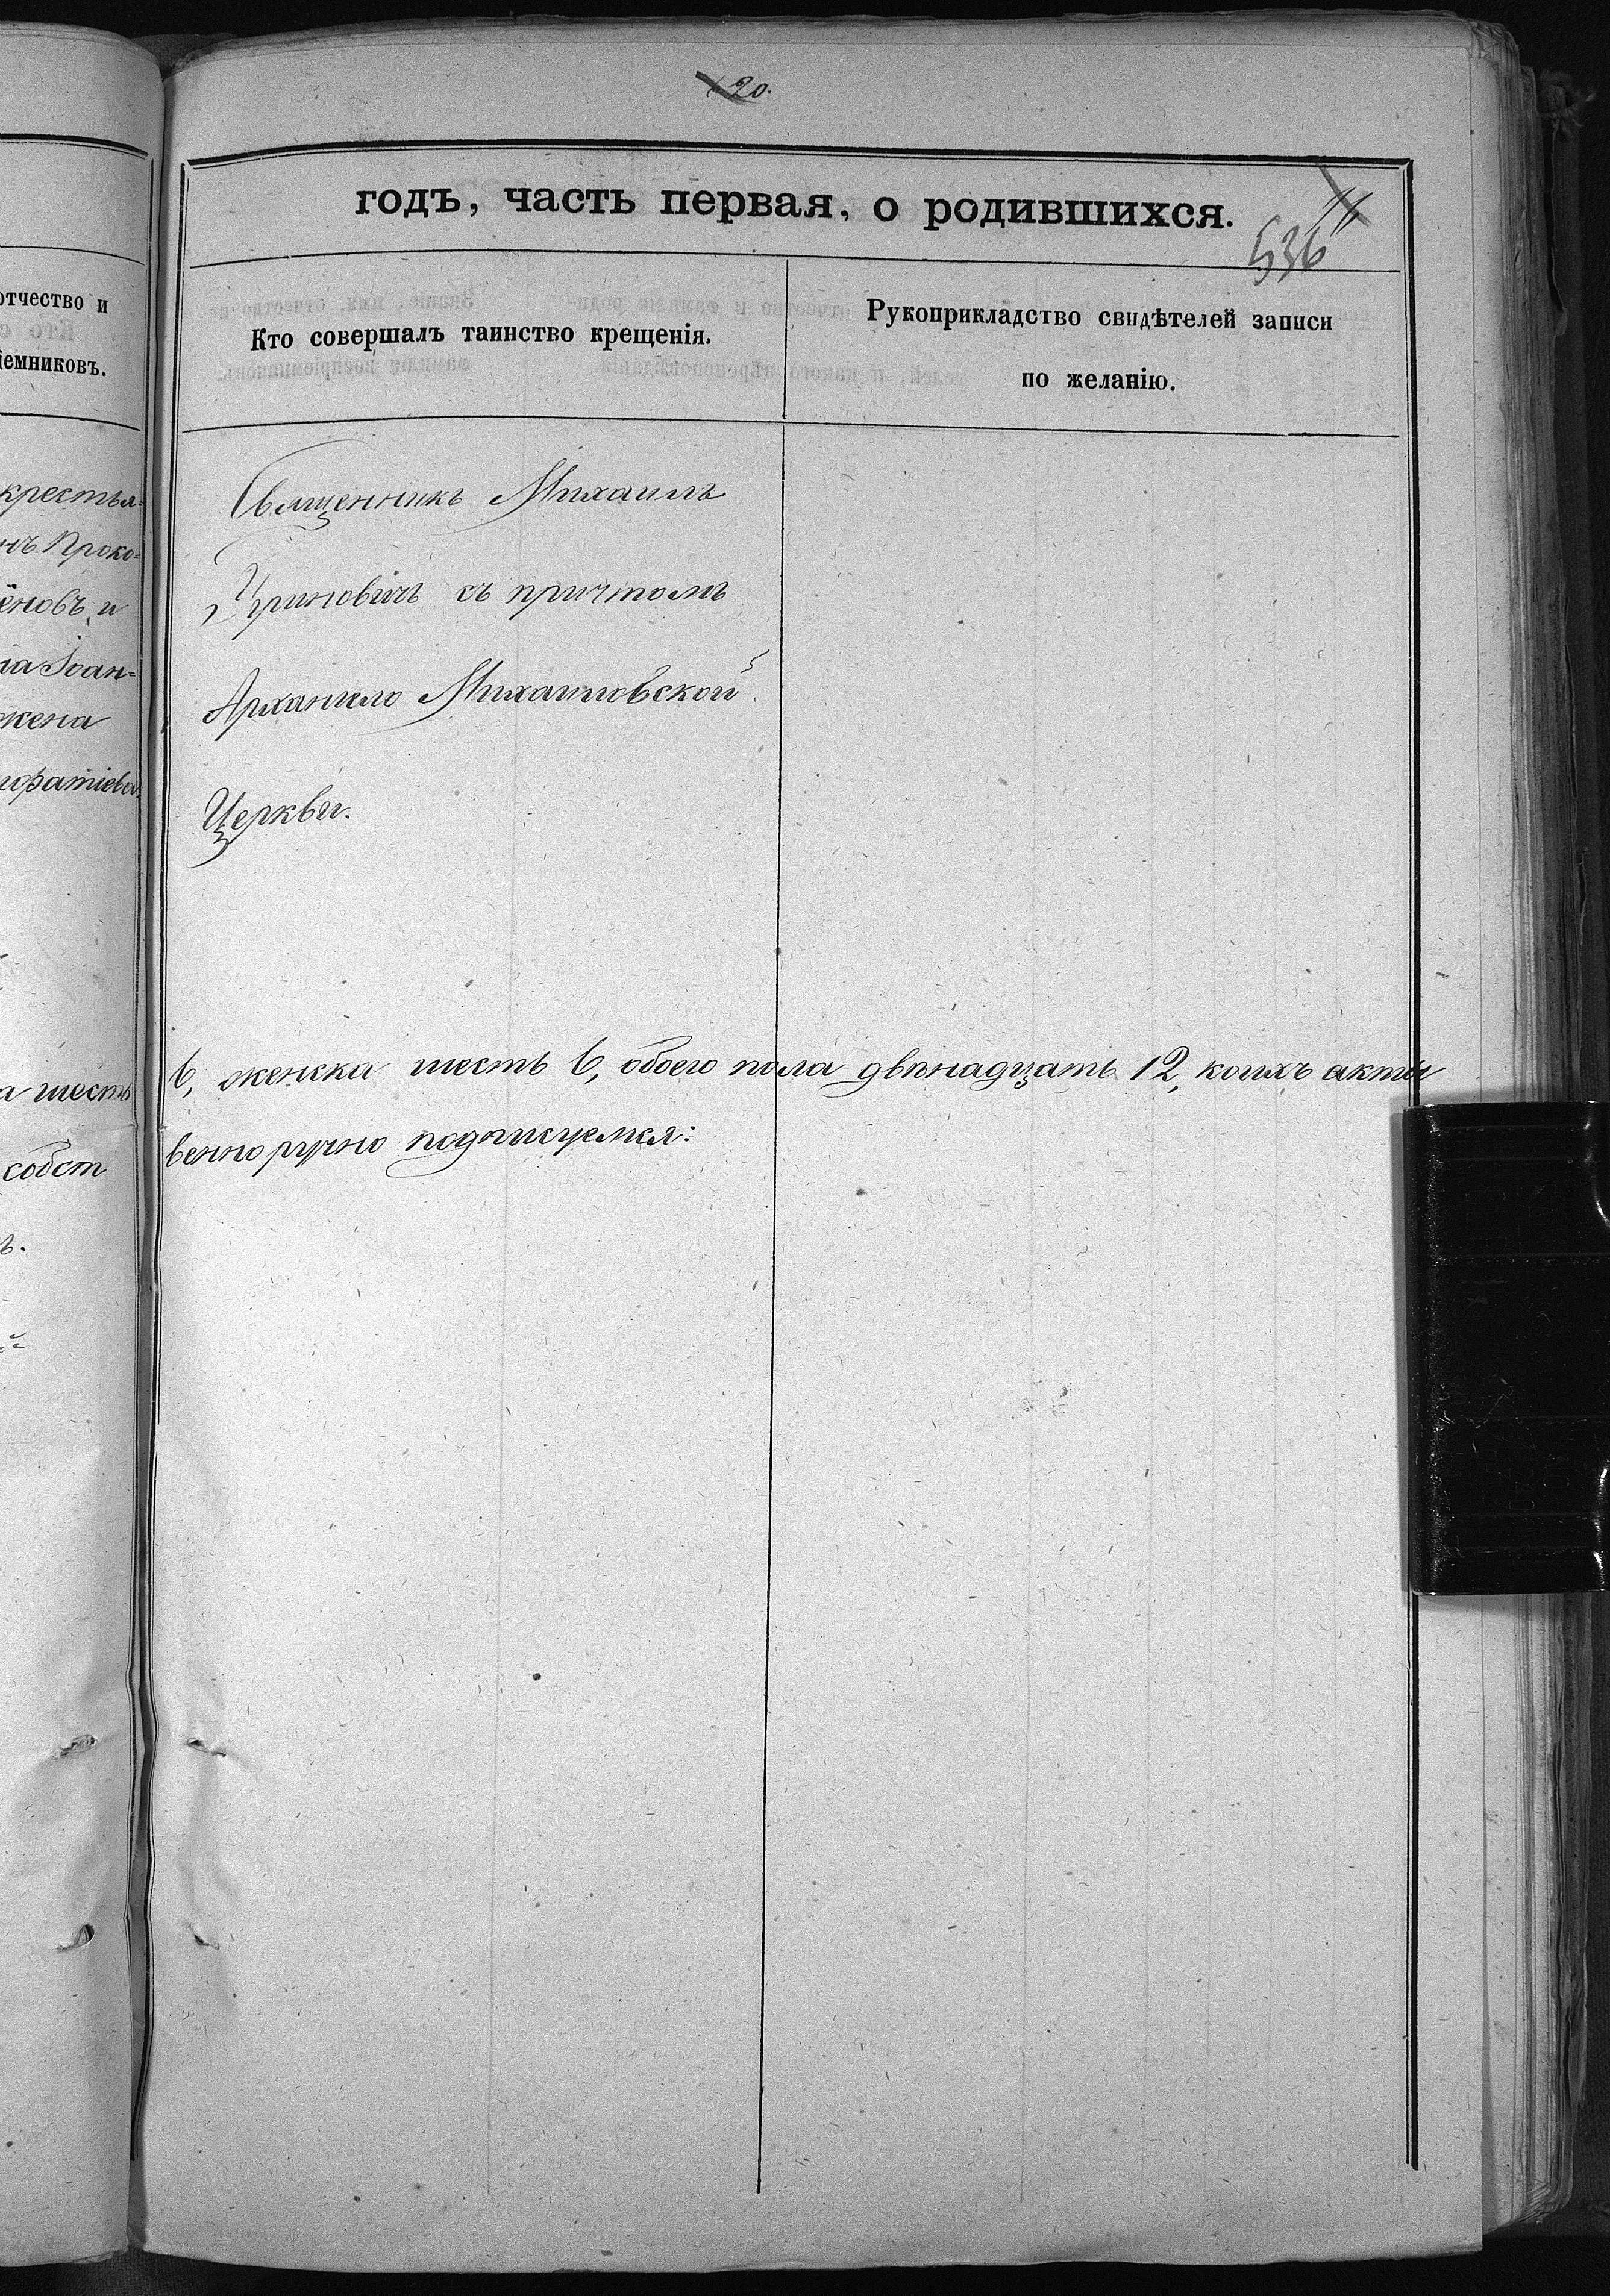 20.
годъ, часть первая, о родившихся.
11
536
отчество и
іемниковъ.
Кто совершалъ таинство крещенія.
Рукоприкладство свидѣтелей записи
по желанію.
крестья-
нъ Проко-
ёновъ, и
Іоан-
жена
Священникъ Михаилъ
Гриновичъ съ причтомъ
Арханило Михаиловской
Церкви.
а шесть
6, женска шесть 6, обоего пола двѣнадцать 12, коихъ акты
собст
венноручно подписуемся:
ъ.